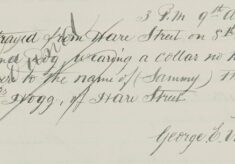 3 P.M 9th
trayed from Hare Street on 8th
Dog, wearing a collar no
to the name of (Sammy)
Hogg, of Hare Street
George